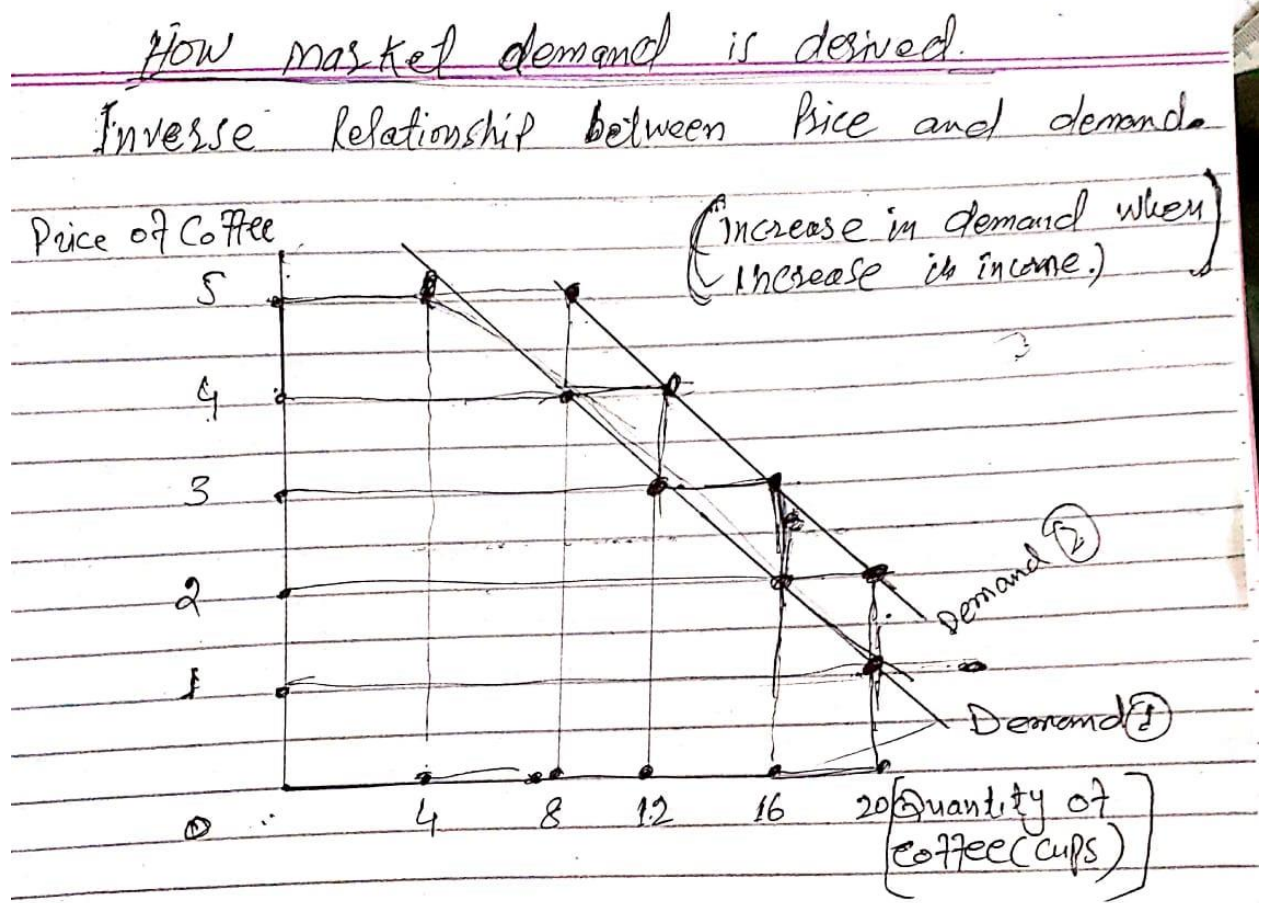 How market demand is derived.
Inverse Relationship between Price and demand.
Price of Coffee
(increase in demand when
increase in income.)
5
4
3
2
1
Demand 2
Demand 1
0 4 8 12 16 20 [Quantity of
coffee (cups)]